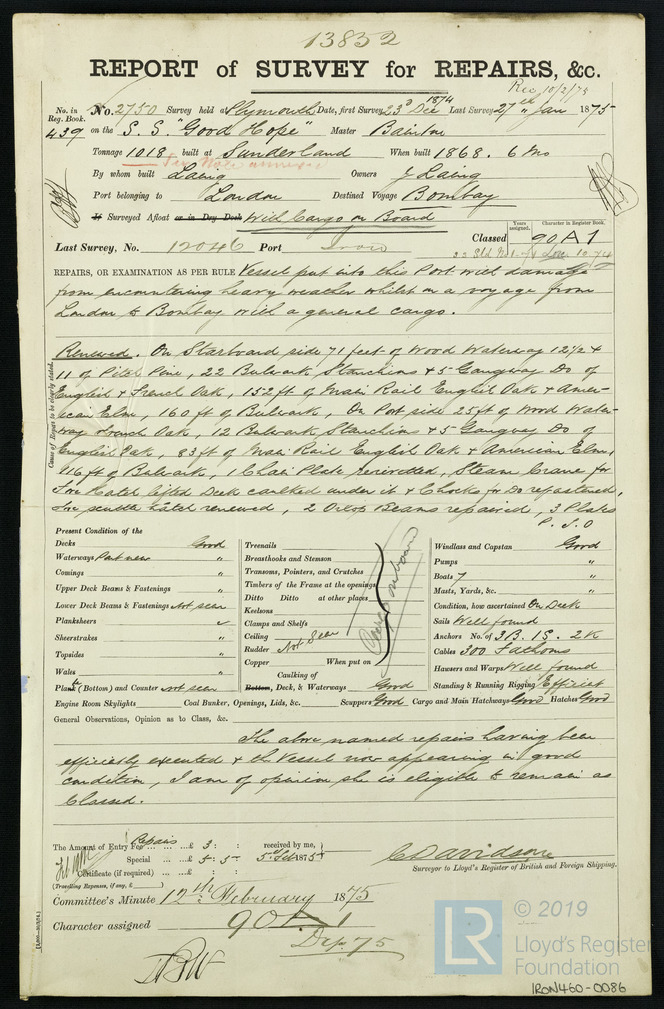 13852
REPORT of SURVEY for REPAIRS, &c.
Rec 10/2/75
No. in Reg. Book. No. 2750 Survey held at Plymouth Date, first Survey 23rd Dec 1874 Last Survey 27th Jan 1875
439 on the S.S. "Good Hope" Master
Tonnage 1018 built at Sunderland When built 1868. 6 Mo
See Note annexed
By whom built Laing Owners J Laing
Port belonging to London Destined Voyage Bombay
If Surveyed Afloat or in Dry Dock With Cargo on Board
Years assigned. Character in Register Book.
Last Survey, No. 12046 Port Iron Classed 90A1
REPAIRS, OR EXAMINATION AS PER RULE Vessel put into this Port with damage
from encountering heavy weather whilst on a voyage from
London to Bombay with a general cargo.
Cause of Repair to be clearly stated.
Renewed. On Starboard side 71 feet of Wood Waterway 12½ x
11 of Pitch Pine, 22 Bulwark Stanchions & 5 Gangway Do of
English & French Oak, 152 ft of Main Rail English Oak & Amer-
ican Elm, 160 ft of Bulwark, On Port side 25 ft of Wood Water-
way French Oak, 12 Bulwark Stanchions & 5 Gangway Do of
English Oak, 83 ft of Main Rail English Oak & American Elm,
116 ft of Bulwark, 1 Chain Plate rerivetted, Steam Crane for
Fore Hatch lifted Deck caulked under it & Chocks for Do refastened,
Fore scuttle hatch renewed, 2 Orlop Beams repaired, 3 Plates
P.T.O
Present Condition of the
Decks Good
Waterways Part new "
Comings "
Upper Deck Beams & Fastenings "
Lower Deck Beams & Fastenings Not seen
Planksheers "
Sheerstrakes "
Topsides "
Wales "
Plank (Bottom) and Counter Not seen
Treenails
Breasthooks and Stemson
Transoms, Pointers, and Crutches
Timbers of the Frame at the openings
Ditto Ditto at other places
Keelsons
Clamps and Shelfs
Ceiling
Rudder Not Seen
Copper When put on
Caulking of
Bottom, Deck, & Waterways Good
Cargo on board
Windlass and Capstan Good
Pumps "
Boats 7 "
Masts, Yards, &c. "
Condition, how ascertained On Deck
Sails Well found
Anchors No. of 3B. 1S. 2K
Cables 300 Fathoms
Hawsers and Warps Well found
Standing & Running Rigging Efficient
Engine Room Skylights Coal Bunker, Openings, Lids, &c. Scuppers Good Cargo and Main Hatchways Good Hatches Good
General Observations, Opinion as to Class, &c.
The above named repairs having been
efficiently executed & the Vessel now appearing in good
condition, I am of opinion she is eligible to remain as
Classed.
The Amount of Entry Fee Repairs ...£ 3 : : received by me,
Special ...£ 5 : 5 : 5th Feb 1875
Certificate (if required) ...£ : :
(Travelling Expenses, if any, £ )
C Davidson
Surveyor to Lloyd's Register of British and Foreign Shipping.
Committee's Minute 12th February 1875
Character assigned 90A1
Dep. 75
LR
© 2019
Lloyd's Register
Foundation
IRON460-0086